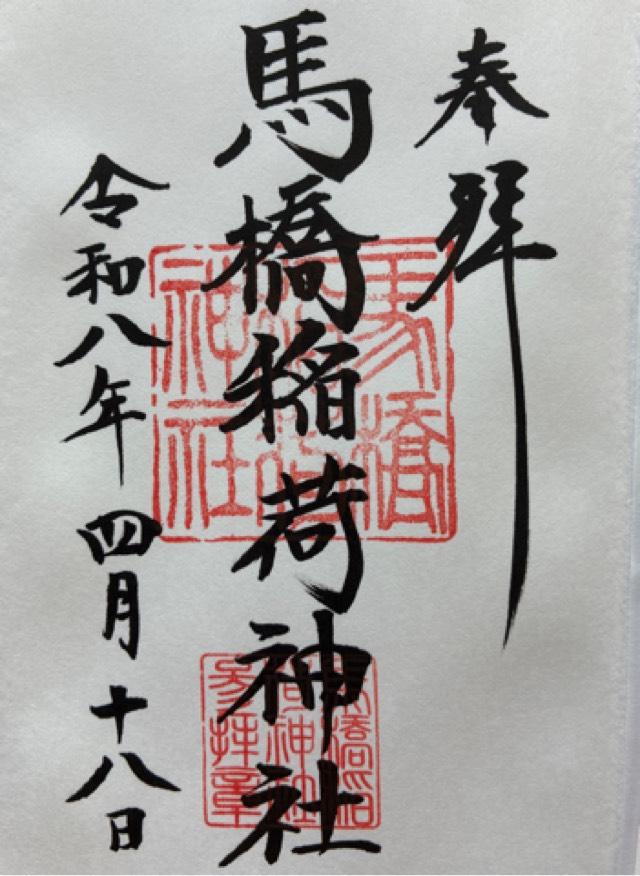 奉拝
馬橋稲荷神社
令和八年四月十八日
馬橋稲荷神社
馬橋稲荷神社参拝章